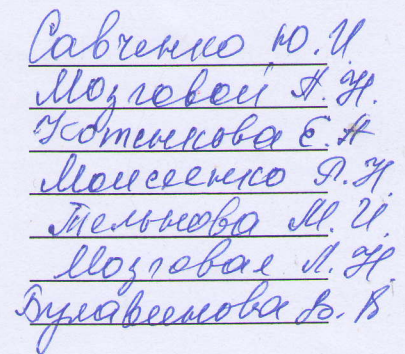 Савченко Ю. И.
Мозговой А. Н.
Котенкова Е. А
Моисеенко Р. Н.
Тельнова М. И.
Мозговая Л. Н.
Булавинова В. В